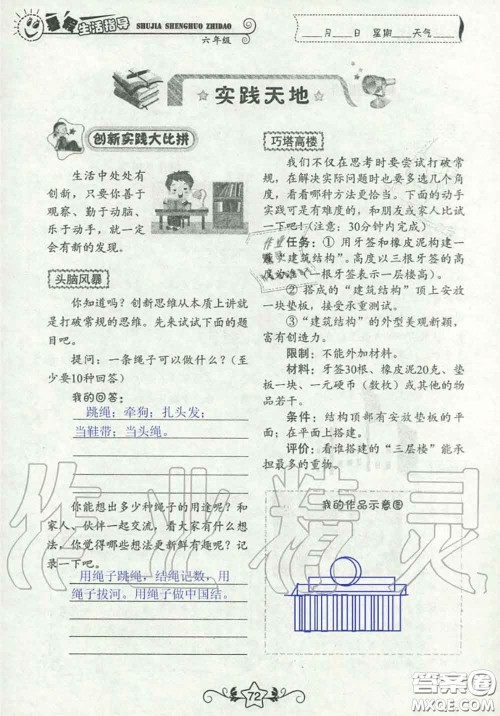 暑假生活指导
SHUJIA SHENGHUO ZHIDAO
六年级
月 日 星期 天气
实践天地
创新实践大比拼
生活中处处有
创新，只要你善于
观察、勤于动脑、
乐于动手，就一定
会有新的发现。
头脑风暴
你知道吗？创新思维从本质上讲就
是打破常规的思维。先来试试下面的题
目吧。
提问：一条绳子可以做什么？（至
少要10种回答）
我的回答：
跳绳；牵狗；扎头发；
当鞋带；当头绳。
你能想出多少种绳子的用途呢？和
家人、伙伴一起交流，看大家有什么想
法。你觉得哪些想法更新鲜有趣呢？记
录一下吧。
用绳子跳绳，结绳记数，用
绳子拔河。用绳子做中国结。
巧塔高楼
我们不仅在思考时要尝试打破常
规，在解决实际问题时也要多选几个角
度，看看哪种方法更恰当。下面的动手
实践可是有难度的，和朋友或家人比试
一下吧！（注意：30分钟内完成）
任务：① 用牙签和橡皮泥构建一
座“建筑结构”。高度以三根牙签的高
度为准（一根牙签表示一层楼高）。
② 搭成的“建筑结构”顶上安放
一块垫板，接受承重测试。
③“建筑结构”的外型美观新颖，
富有创造性。
限制：不能外加材料。
材料：牙签30根、橡皮泥20克、垫
板一块、一元硬币（数枚）或其他的物
品若干。
条件：结构顶部有安放垫板的平
面；在平面上搭建。
评价：看谁搭建的“三层楼”能承
担最多的重物。
我的作品示意图
作业精灵
72
答案圈
MXQE.COM